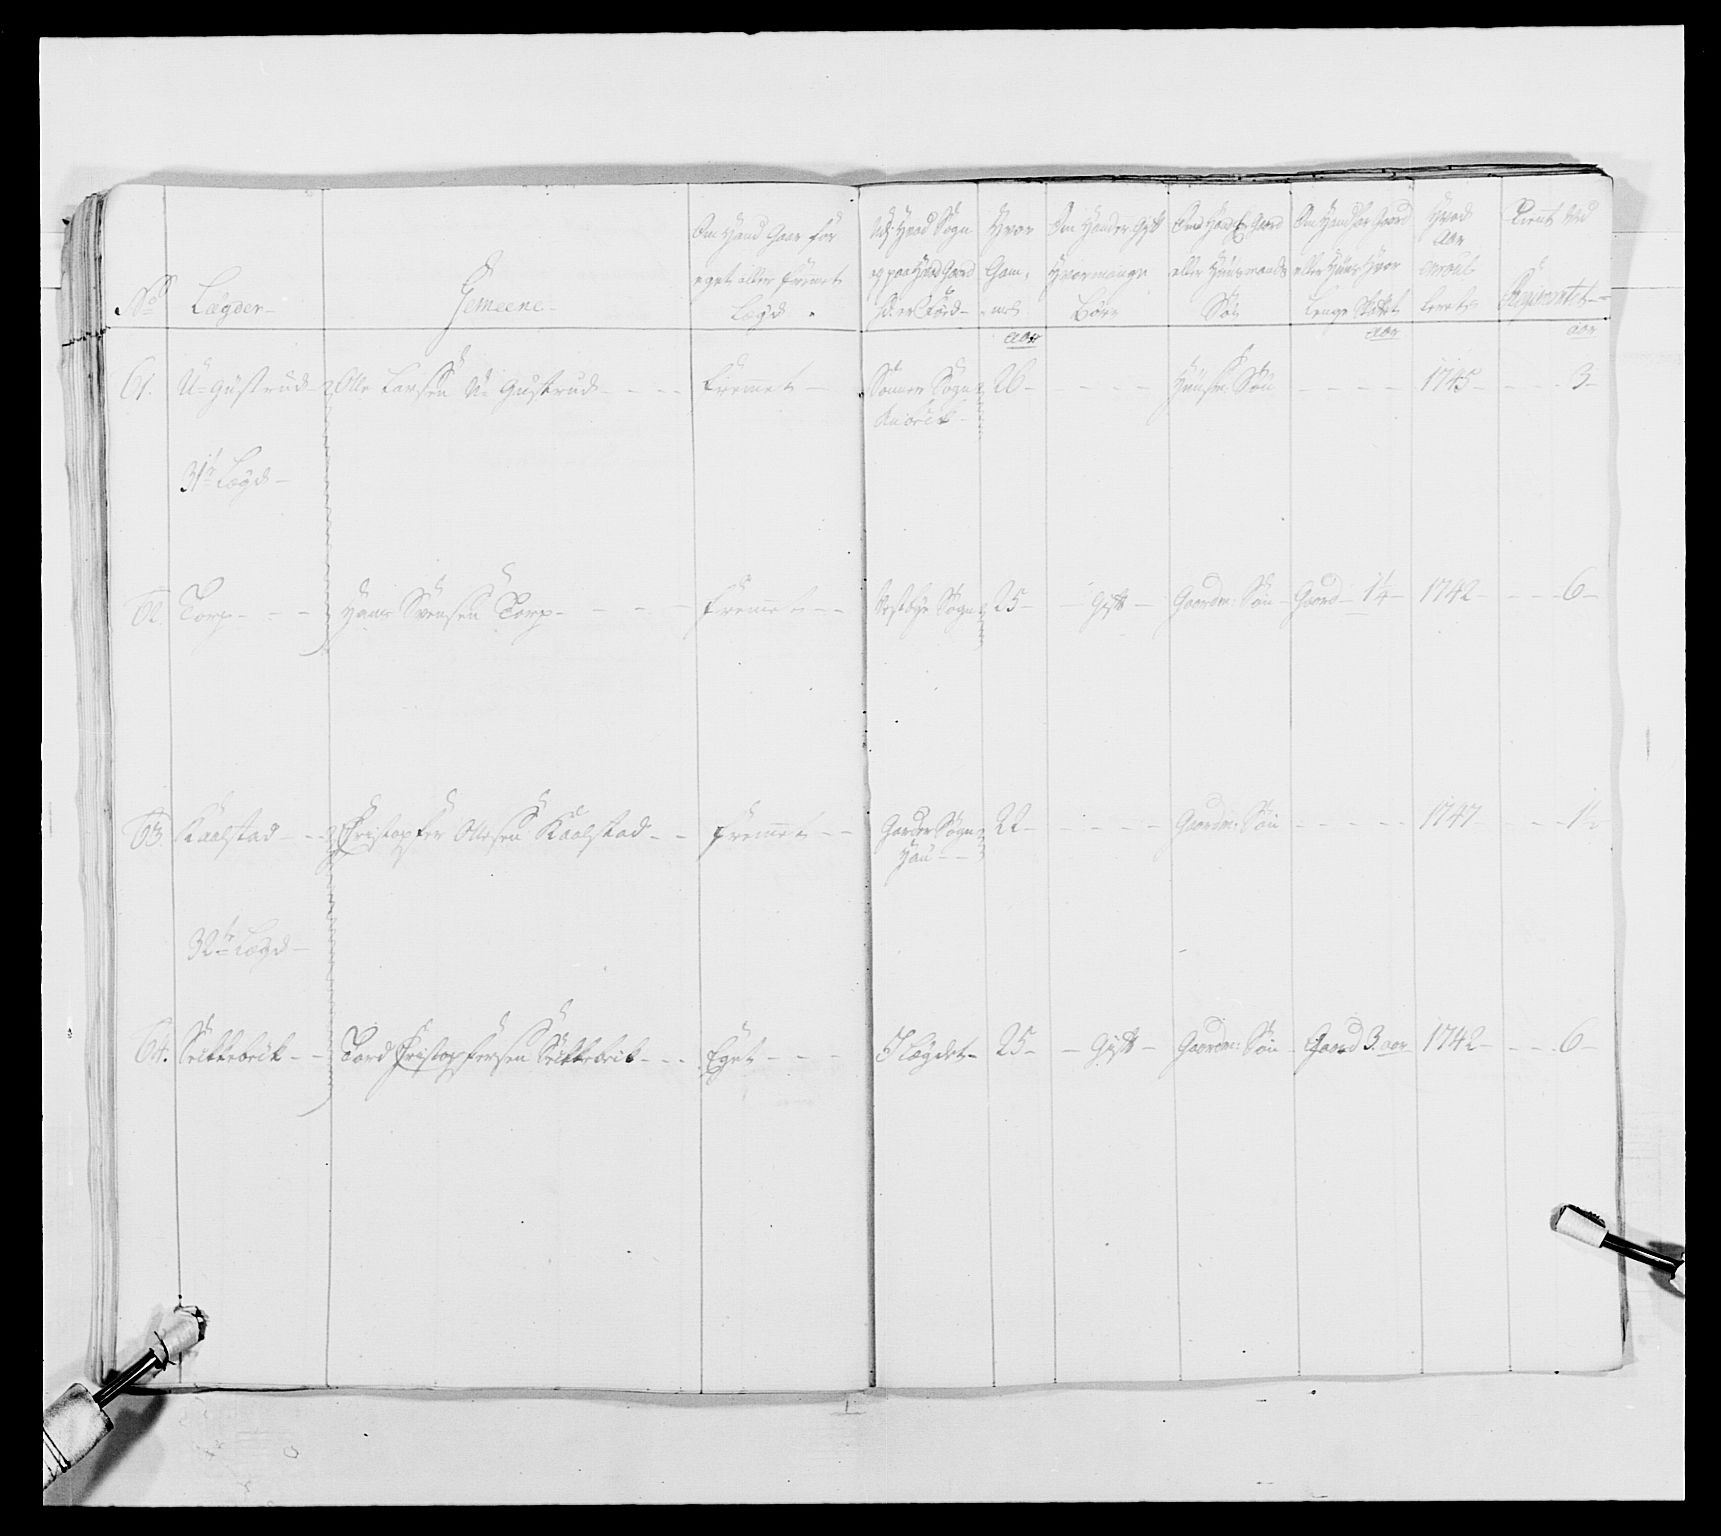 No
Lægder
Gemeene
Om Hand Gaar for
eget eller fremet
Lægd
Udj Hvad Sogn
og paa Hvad Gaard
Hvor
Gam-
mel
aar
Om Hand er Gift
Hvormange
Børn
Om Hand Er Gaard
eller Huusmands
Søn
Om Hand har Gaard
eller Huus Hvor
Lenge
aar
Hvad
aar
enroul-
leret
Tient Ved
Regimentet
aar
61. N= Gustrud Olle Larsen N= Gustrud - - - fremet Sonner Sogn 26 - - - Huusm: Søn - - - 1745 - - - 3
31te Lægd
62. Torp - - - Hans Svensen Torp - - - fremet - - Vestbye Sogn 25 - Gift - Gaardm: Søn Gaard 1¼ 1742 - - - 6
63. Kaalstad - - Christopfer Ollesen Kaalstad - - fremet - - Garder Sogn 22 - - - Gaardm: Søn - - - 1747 - - - 1½
Hau - -
32te Lægd
64. Seikkebek - - Tord Christopfersen Seikkebek - - - Eget - - - I Lægdet - 25 - Gift - Gaardm: Søn Gaard 3 aar 1742 - - - 6